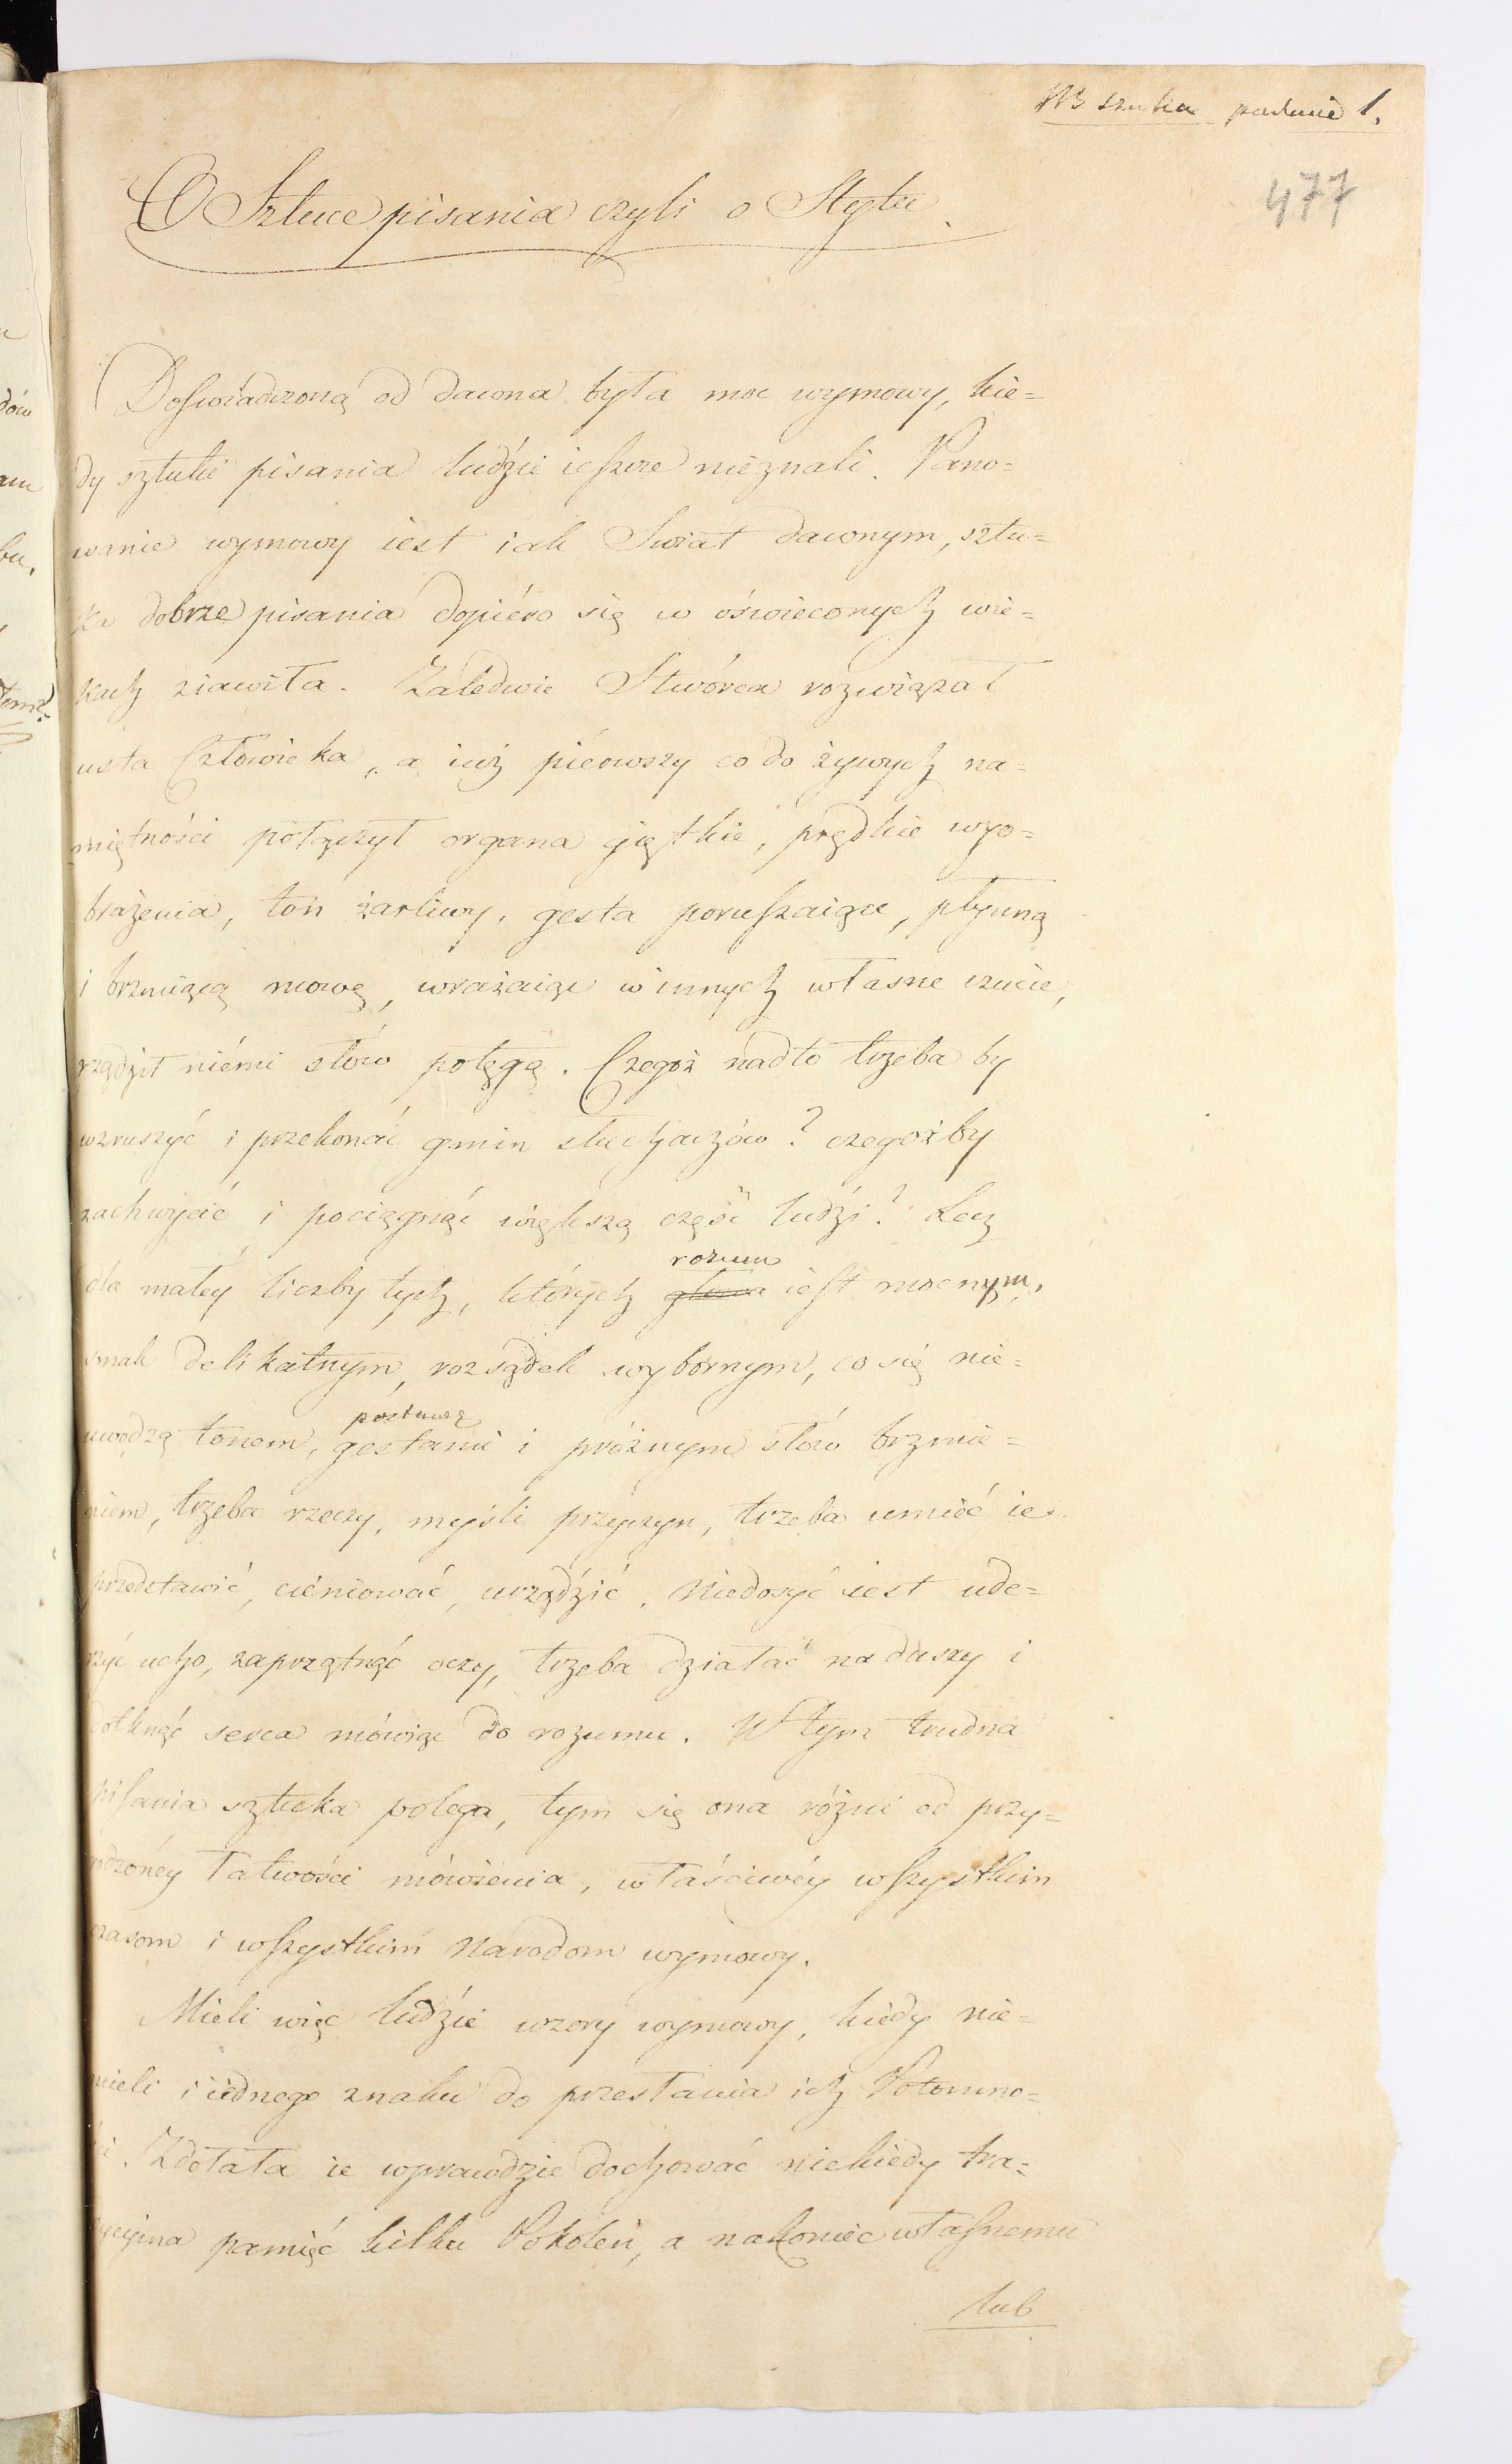 477
O Sztuce pisania czyli o Stylu.
Doſwiadczoną od dawna była moc wymowy, kie=
dy sztuki pisania ludzie ieſzcze nieznali. Pano=
wanie wymowy iest iak Swiat dawnym, sztu=
ka dobrze pisania dopiéro się w oświeconych wie=
kach ziawiła. Zaledwie Stwórca rozwiązał
usta Człowieka, a iuż piérwszy co do żywych na=
miętności połączył organa giętkie, prędkie wyo=
brażenia, ton żarliwy, gesta poruſzaiące, płynną
i brzmiącą mowę, wrażaiąc w innych własne czucie,
rządził niémi słów potęgą. Czegoż nadto trzeba by
wzruszyć i przekonać gmin słuchaczów? czegoż by
zachwycić i pociągnąć większą część ludzi? Lecz
rozum
dla małéy liczby tych, których głowa ieſt mocnym,
smak delikatnym, rozsądek wybornym, co się nie=
postawą
uwodzą tonem, gestami i próżnym słów brzmie=
niem, trzeba rzeczy, myśli przyczyn, trzeba umieć ie
przedstawić, cieniować, urządzić. Niedosyć iest ude=
rzyć ucho, zaprzątnąć oczy, trzeba działać na duszy i
dotknąć serca mówiąc do rozumu. W tym trudna
piſania sztuka polega, tym się ona różni od przy=
rodzonéy łatwości mówienia, właściwéy wſzystkim
czasom i wſzystkim Narodom wymowy.
Mieli więc ludzie wzory wymowy, kiedy nie=
mieli i iednego znaku do przesłania ich Potomno=
ści. Zdołała ie wprawdzie dochować niekiedy tra=
dycyina pamięć kilku Pokoleń, a nakoniec właſnemu
lub